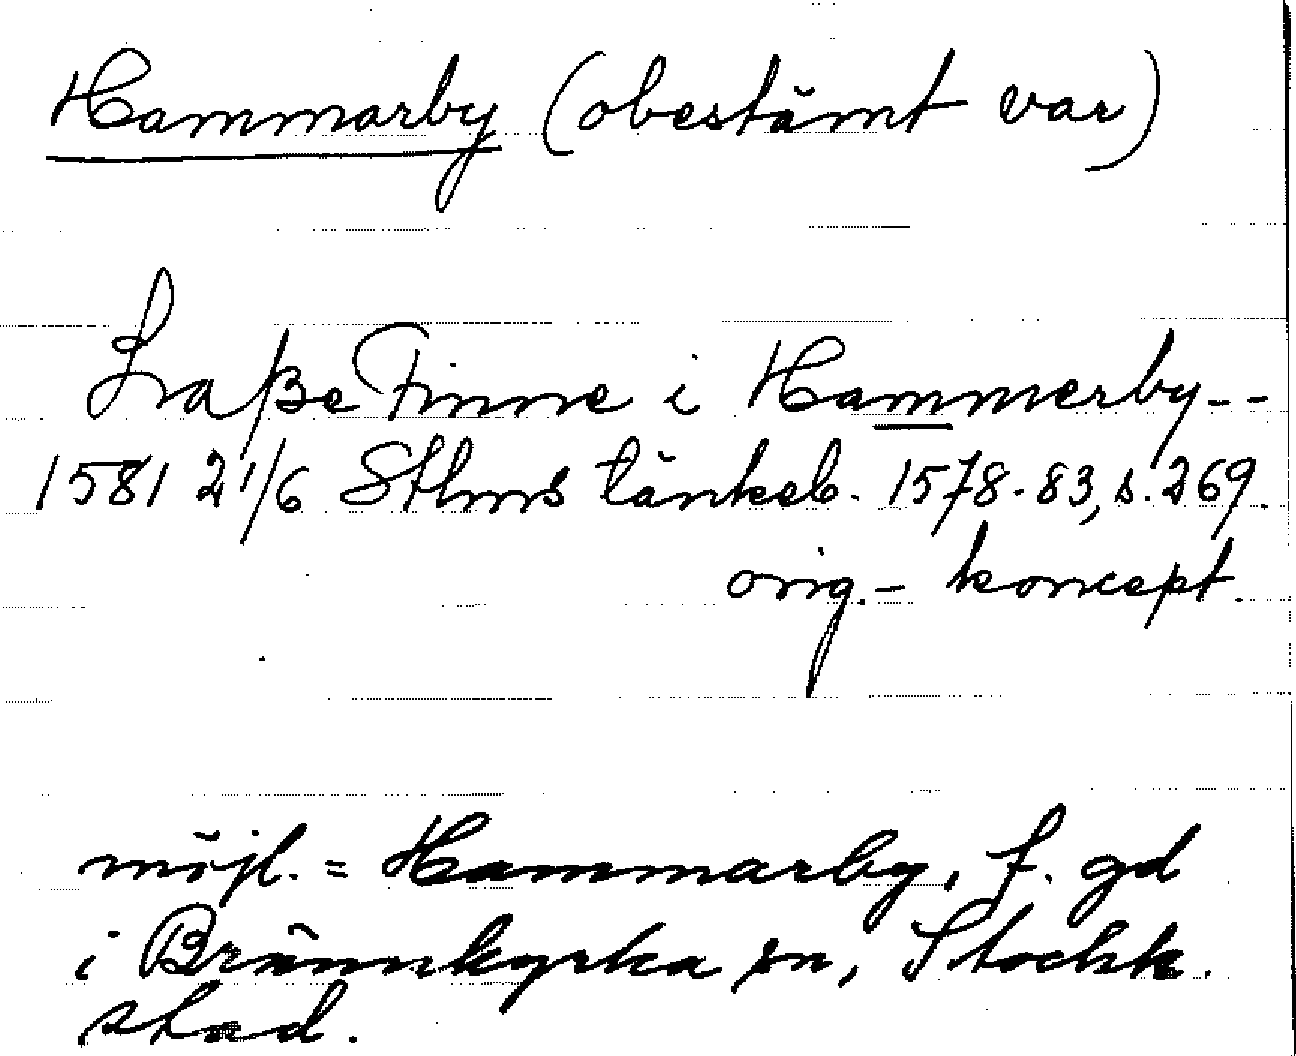 Hammarby (obestämt var)
Laße Finne i Hammerby--
1581 21/6 Sthms tänkeb. 1578-83, s. 269.
orig.- koncept.
möjl. = Hammarby, f. gd
i Brännkyrka sn, Stockh.
stad.